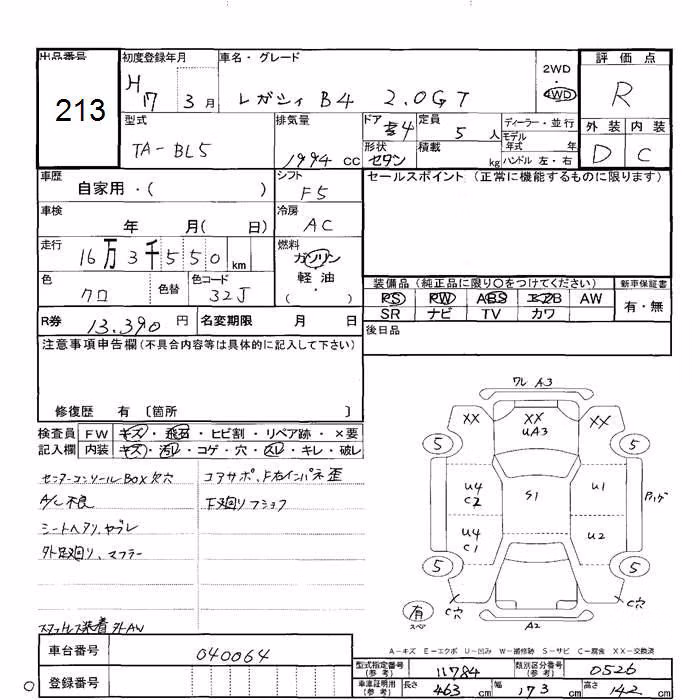 出品番号
213
初度登録年月
H17 3月
車名・グレード
レガシィ B4 2.0GT
2WD
4WD
評価点
R
外装 内装
D C
型式
TA-BL5
排気量
1994 cc
ドア
4
定員
5 人
形状
セダン
積載
kg
ディーラー・並行
モデル
年式 年
ハンドル 左・右
車歴
自家用・( )
シフト
F5
セールスポイント (正常に機能するものに限ります)
車検
年 月( 日)
冷房
AC
走行
16万3千550 km
燃料
ガソリン
軽油
・( )
色
クロ
色替
色コード
32J
装備品 (純正品に限り〇をつけてください)
新車保証書
PS PW ABS エアB AW
SR ナビ TV カワ
有・無
R券
13.390 円
名変期限 月 日
後日品
注意事項申告欄 (不具合内容等は具体的に記入して下さい)
修復歴 有 〔箇所 〕
検査員
記入欄
FW キズ・飛石・ヒビ割・リペア跡・×要
内装 キズ・汚レ・コゲ・穴・スレ・キレ・破レ
センターコンソールBOX欠穴
A/C不良
シートヘタリ、ヤブレ
外足廻り、マフラー
スタッドレス装着 外AW
コアサポ、F右インパネ歪
下廻りフショク
ワレ A3
XX
XX
UA3
XX
5
5
U4
C2
S1
U1
U4
C1
U2
5
5
C穴
C穴
有
スペア
A2
A-キズ E-エクボ U-凹み W-補修跡 S-サビ C-腐食 XX-交換済
車台番号
040064
登録番号
型式指定番号
(参考)
11784
類別区分番号
(参考)
0526
車庫証明用
(参考)
長さ
463 cm
幅
173 cm
高さ
142 cm